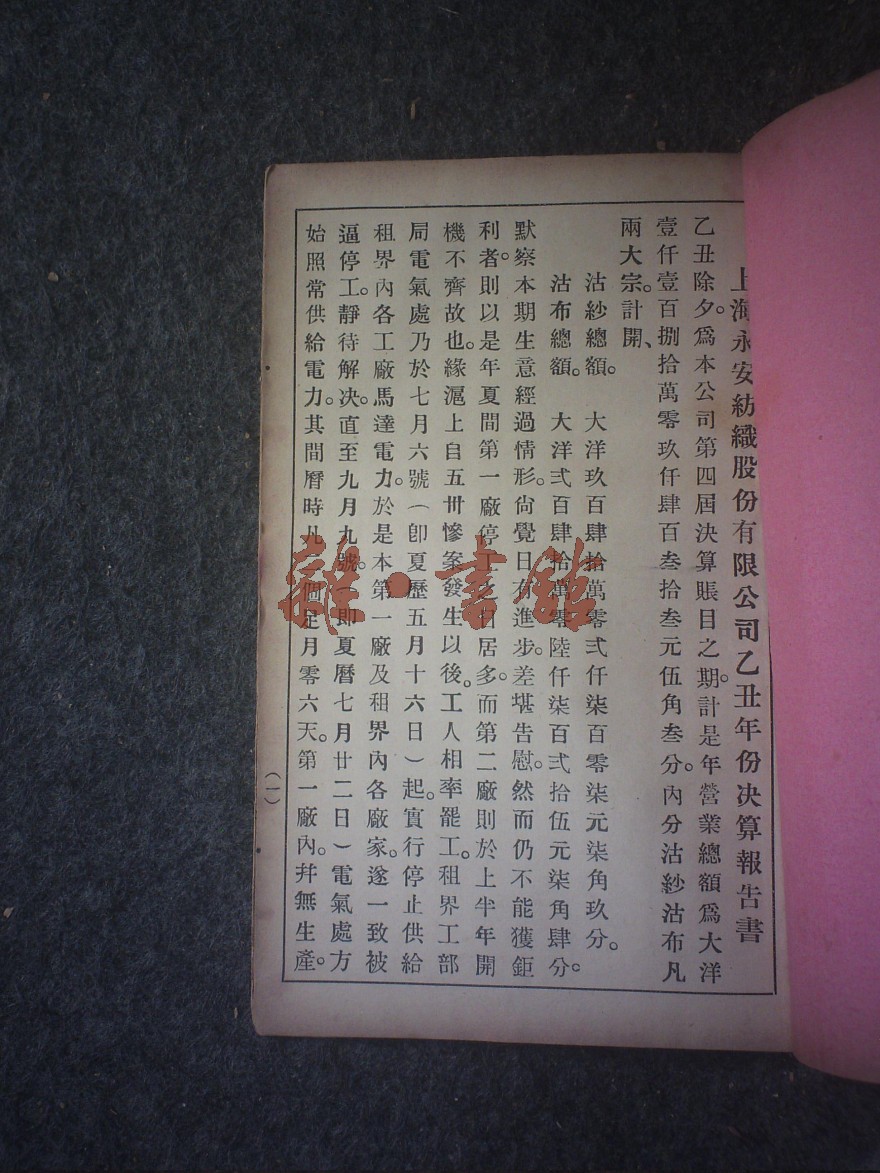 上海永安紡織股份有限公司乙丑年份決算報告書
乙丑除夕。爲本公司第四屆決算賬目之期。計是年營業總額爲大洋
壹仟壹百捌拾萬零玖仟肆百叁拾叁元伍角叁分。內分沽紗沽布凡
兩大宗。計開、
沽紗總額。　大洋玖百肆拾萬零弍仟柒百零柒元柒角玖分。
沽布總額。　大洋弍百肆拾萬零陸仟柒百弍拾伍元柒角肆分。
默察本期生意經過情形。尙覺日有進步。差堪告慰。然而仍不能獲鉅
利者。則以是年夏間第一廠停工之日居多。而第二廠則於上半年開
機不齊故也。緣滬上自五卅慘案發生以後。工人相率罷工。租界工部
局電氣處乃於七月六號（卽夏歷五月十六日）起。實行停止供給
租界內各工廠馬達電力。於是本第一廠及租界內各廠家。遂一致被
逼停工。靜待解决。直至九月九號。（即夏曆七月廿二日）電氣處方
始照常供給電力。其間曆時凡個足月零六天。第一廠內。幷無生產。
（一）
雜·書館